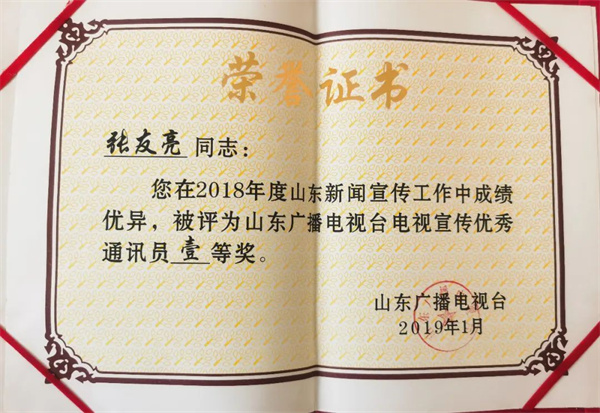 荣誉证书
张友亮 同志：
您在2018年度山东新闻宣传工作中成绩
优异，被评为山东广播电视台电视宣传优秀
通讯员 壹 等奖。
山东广播电视台
2019年1月